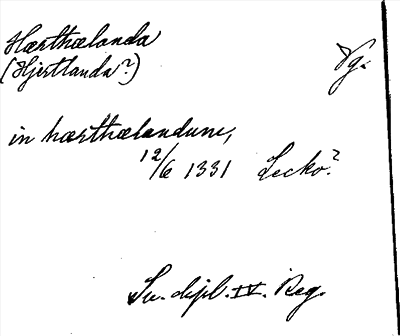 Hærthælanda
(Hjertlanda?)
Vg.
in hærthælandum,
12/6 1331 Lecko?
Sv. dipl. IV. Reg.